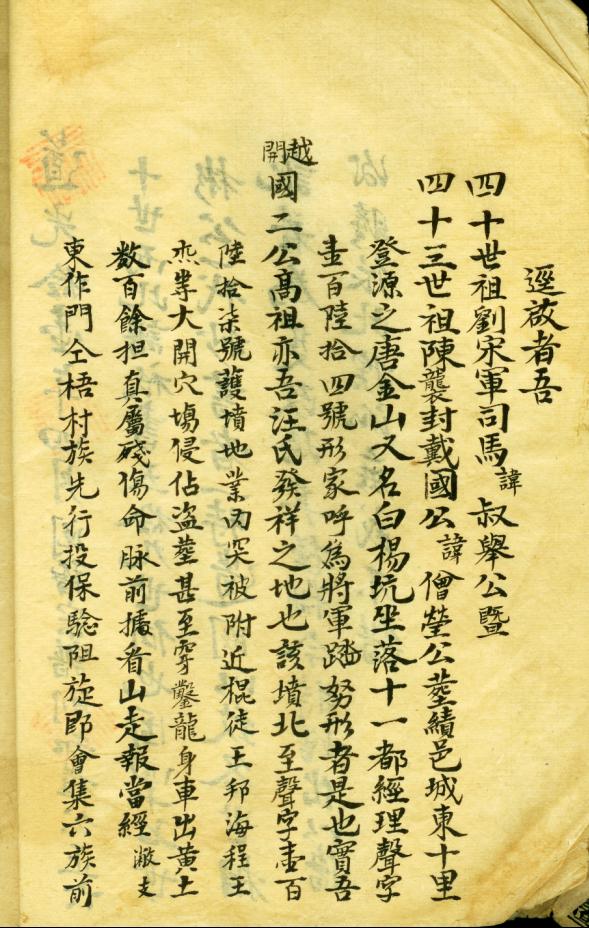 逕啟者吾
四十世祖劉宋軍司馬諱叔舉公暨
四十三世祖陳襲封戴國公諱僧瑩公塟績邑城東十里
登源之唐金山又名白楊坑坐落十一都經理聲字
壹百陸拾四號形家呼爲將軍踏努形者是也實吾
越開國二公高祖亦吾汪氏發祥之地也該墳北至聲字壹百
陸拾柒號護墳地業内突被附近棍徒王邦海程王
𤆬等大開穴塲侵佔盜塟甚至穿鑿龍身車出黃土
数百餘担真屬殘傷命脉前據看山走報當經敝支
東作門仝梧村族先行投保騐阻旋即會集六族前